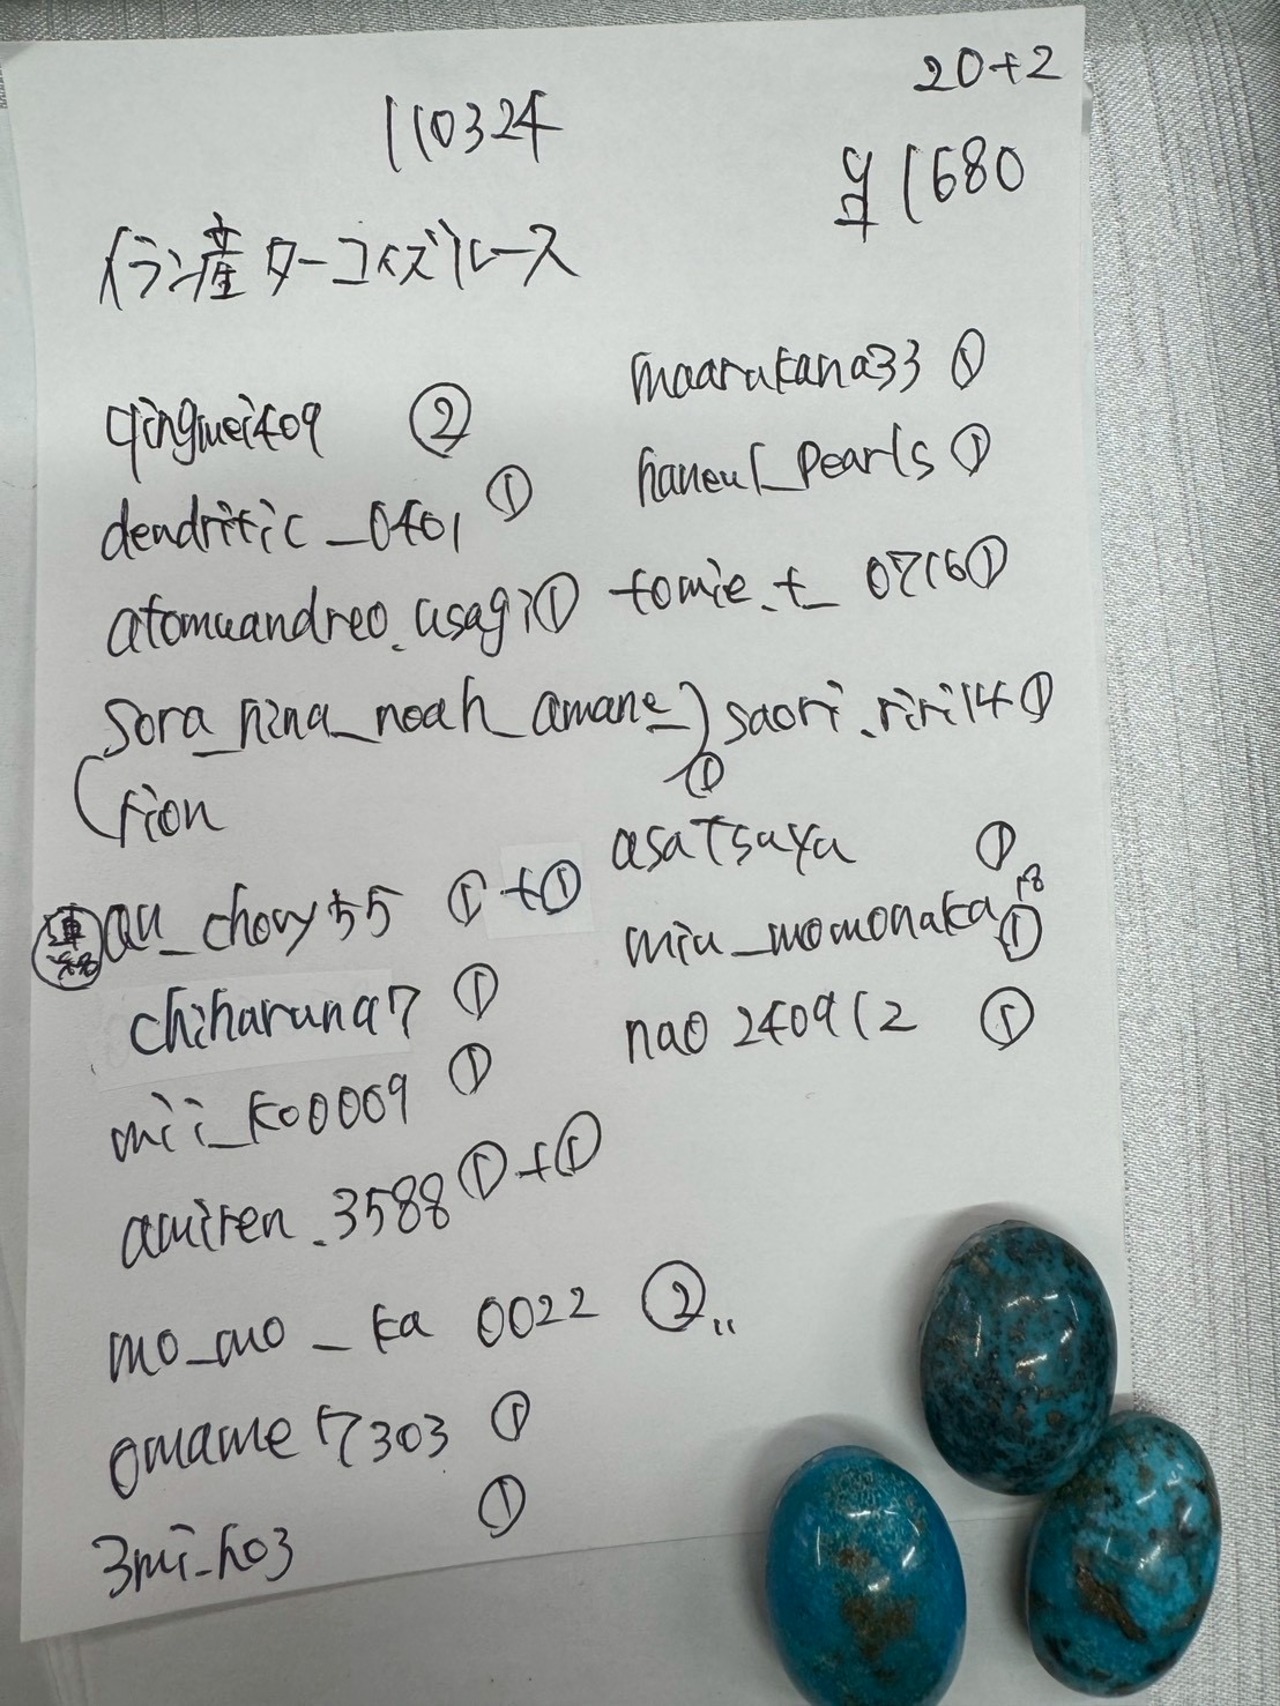 20+2
110324
¥1680
イラン産ターコイズルース
qingmei409 ②
dendritic_0401 ①
atomuandreo.usagi①
sora_nina_noah_amane_
rion ①
連絡 au_chovy55 ①+①
chiharuna7 ①
mii_ko0009 ①
amiren.3588①+①
mo_mo_ka 0022 ②
omame17303 ①
3mi_ho3 ①
maarukana33 ①
haneul_pearls ①
tomie.t_0716①
saori.riri14①
asatsuya ①
miu_momonaka18 ①
nao240912 ①